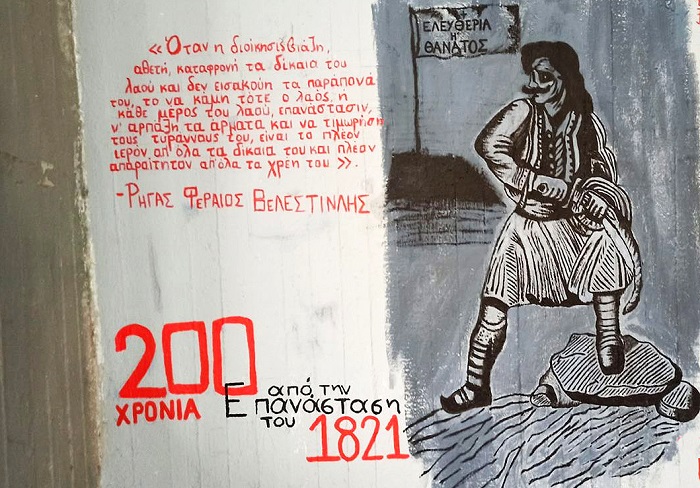 «Όταν η διοίκησις βιάζη,
αθετή, καταφρονή τα δίκαια του
λαού και δεν εισακούη τα παράπονά
του, το να κάμη τότε ο λαός, ή
κάθε μέρος του λαού, επανάστασιν,
ν' αρπάζη τα άρματα και να τιμωρήση
τους τυράννους του, είναι το πλέον
ιερόν απ' όλα τα δίκαιά του και πλέον
απαραίτητον απ' όλα τα χρέη του».
-ΡΗΓΑΣ ΦΕΡΑΙΟΣ ΒΕΛΕΣΤΙΝΛΗΣ
ΕΛΕΥΘΕΡΙΑ
Ή
ΘΑΝΑΤΟΣ
200
ΧΡΟΝΙΑ
από την
Επανάσταση
του 1821